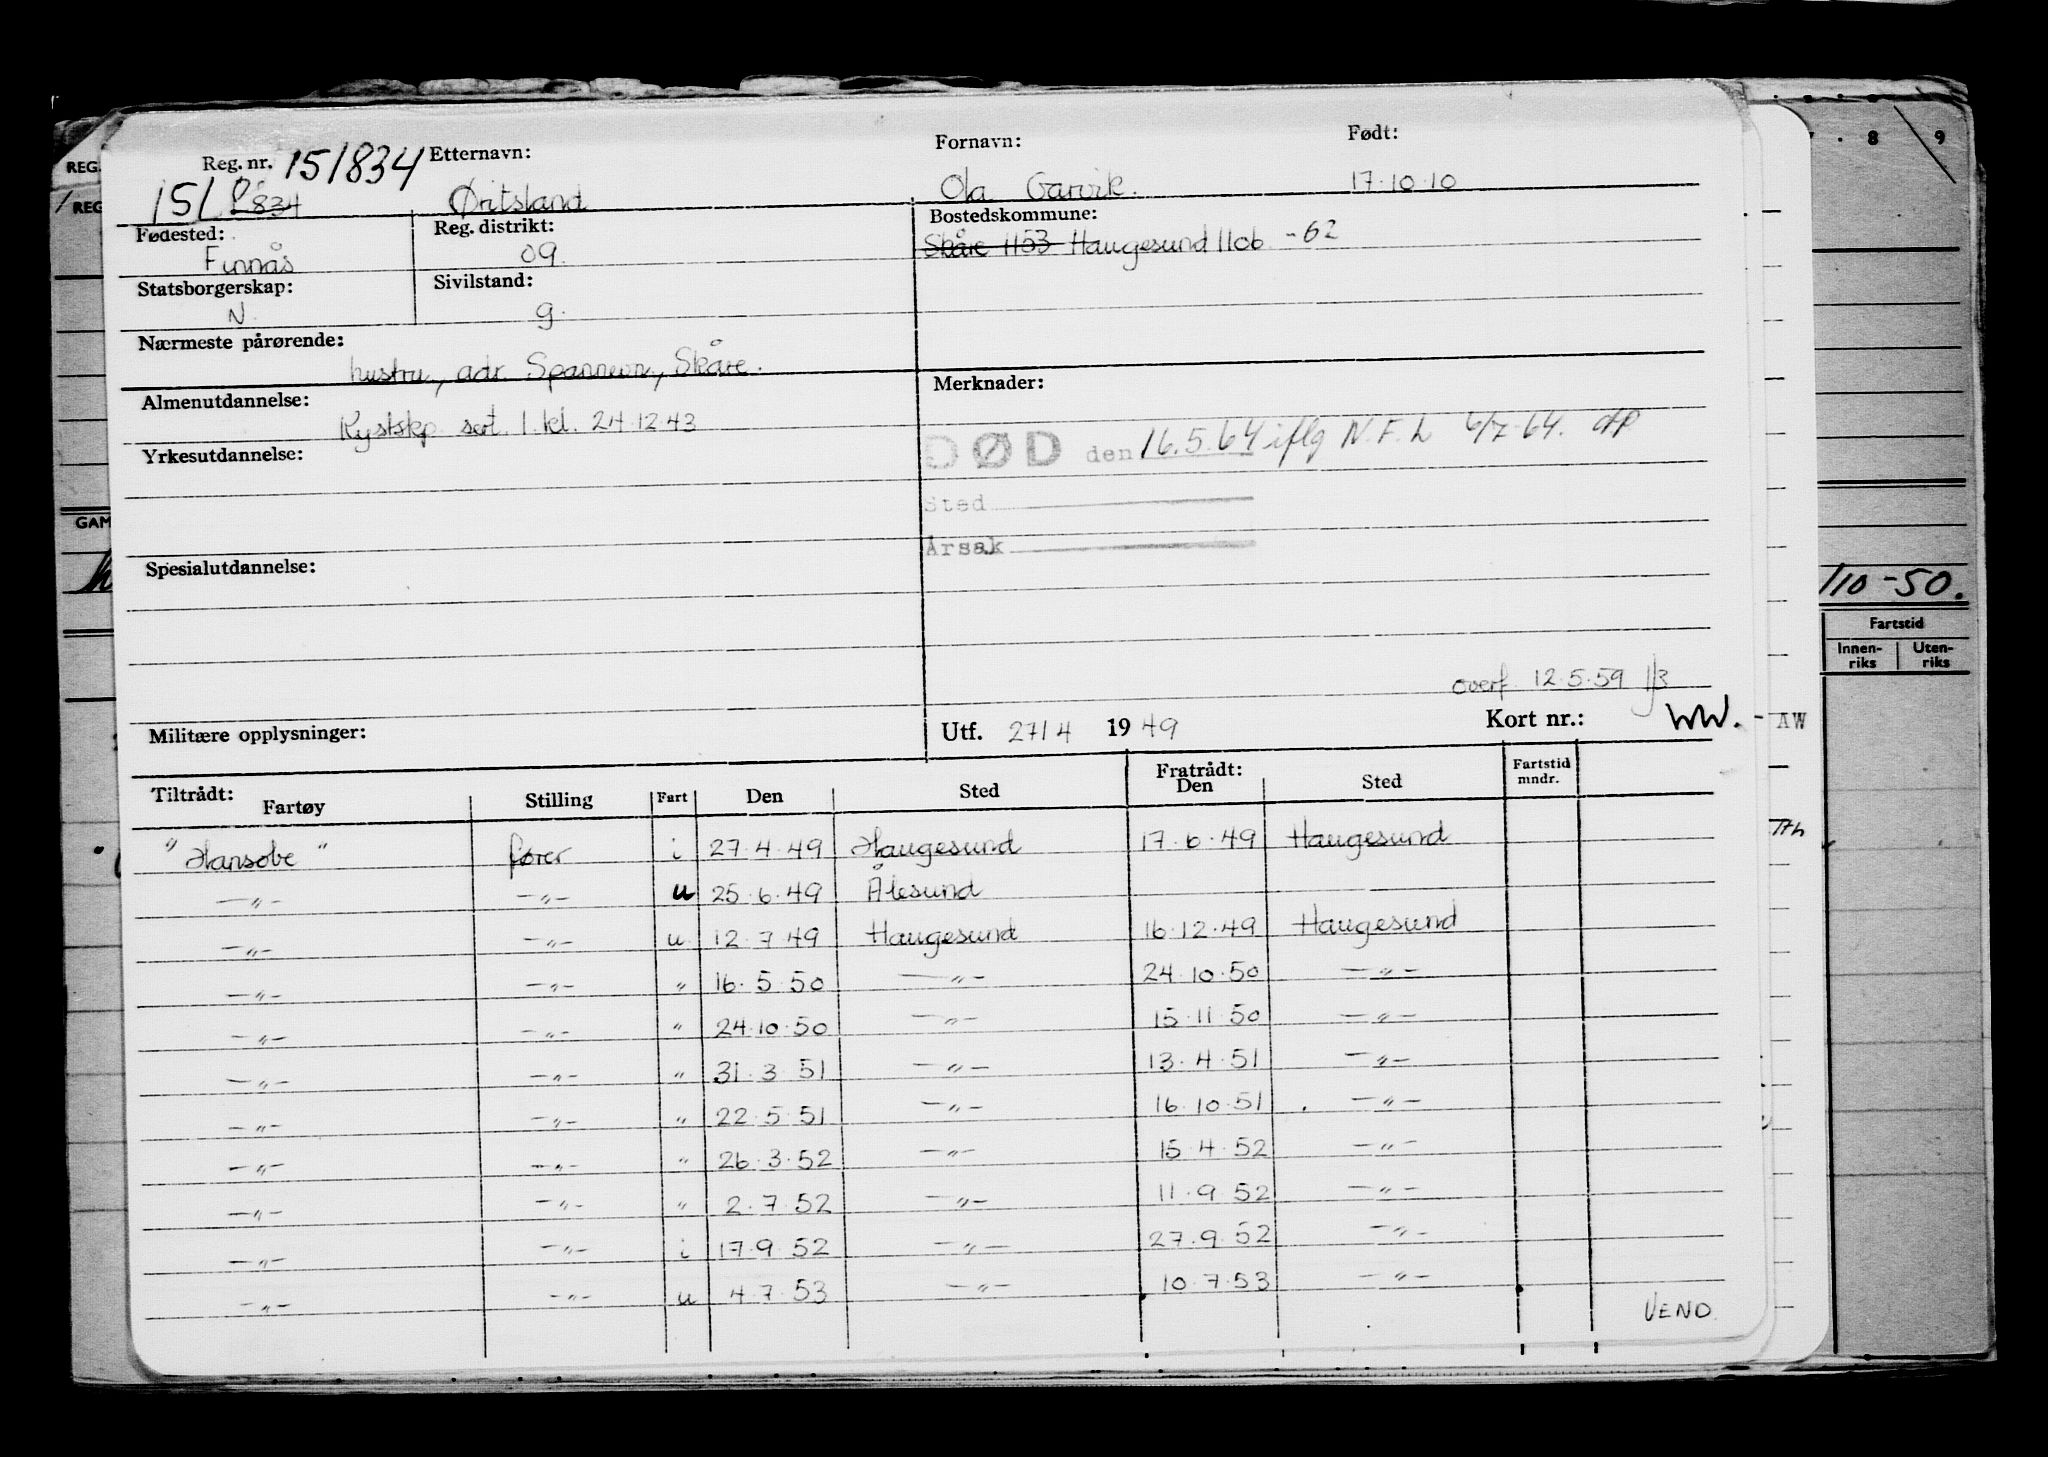 Reg. nr. 151834 Etternavn: Fornavn: Født:
151 834 Øritsland Ola Garvik. 17.10.10
Fødested: Reg. distrikt: Bostedskommune:
Finnås 09. Skåre 1153 Haugesund 1106 -62
Statsborgerskap: Sivilstand:
N. g.
Nærmeste pårørende:
hustru, adr. Spannevn, Skåre.
Almenutdannelse: Merknader:
Kystskp. sert. 1. kl. 24.12.43
Yrkesutdannelse: DØD den 16.5.64 iflg N.F.L 6/7-64.
Sted
Årsak
Spesialutdannelse:
overf. 12.5.59
Militære opplysninger: Utf. 27/4 1949 Kort nr.: WW. - AW
Tiltrådt: Fartøy Stilling Fart Den Sted Fratrådt: Den Sted Fartstid mndr.
"Hansobe" fører i 27.4.49 Haugesund 17.6.49 Haugesund
-„- -„- u 25.6.49 Ålesund
-„- -„- u 12.7.49 Haugesund 16.12.49 Haugesund
-„- -„- " 16.5.50 -„- 24.10.50 -„-
-„- -„- " 24.10.50 -„- 15.11.50 -„-
-„- -„- " 31.3.51 -„- 13.4.51 -„-
-„- -„- " 22.5.51 -„- 16.10.51 -„-
-„- -„- " 26.3.52 -„- 15.4.52 -„-
-„- -„- " 2.7.52 -„- 11.9.52 -„-
-„- -„- i 17.9.52 -„- 27.9.52 -„-
-„- -„- u 4.7.53 -„- 10.7.53 -„-
VEND.
REG.
REG
GAM
8 9
110-50.
Fartstid
Innen-riks Uten-riks